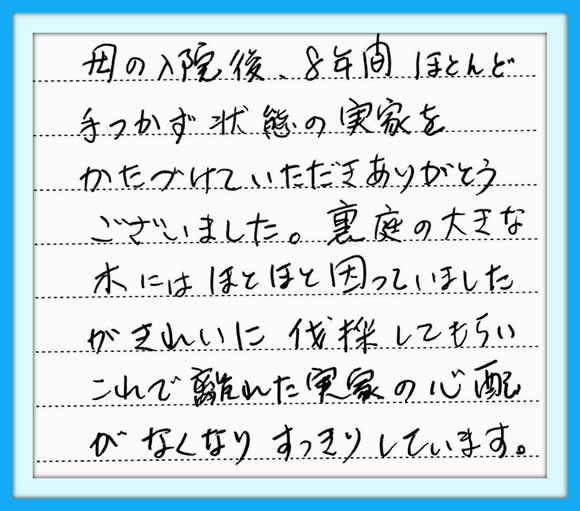 母の入院後、8年間ほとんど
手つかず状態の実家を
かたづけていただきありがとう
ございました。裏庭の大きな
木にはほとほと困っていました
がきれいに伐採してもらい
これで離れた実家の心配
がなくなりすっきりしています。